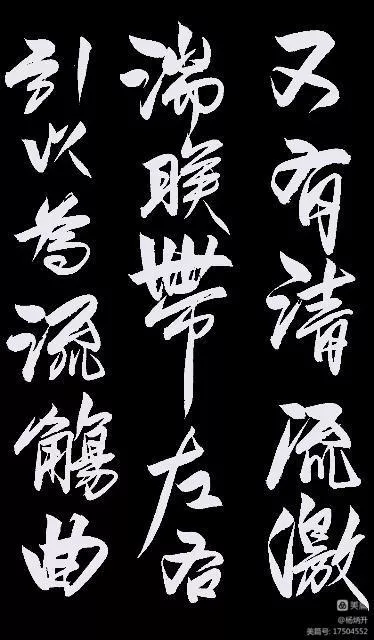 又有清流激
湍映帶左右
引以為流觴曲
美篇
@杨炳升
美篇号: 17504552